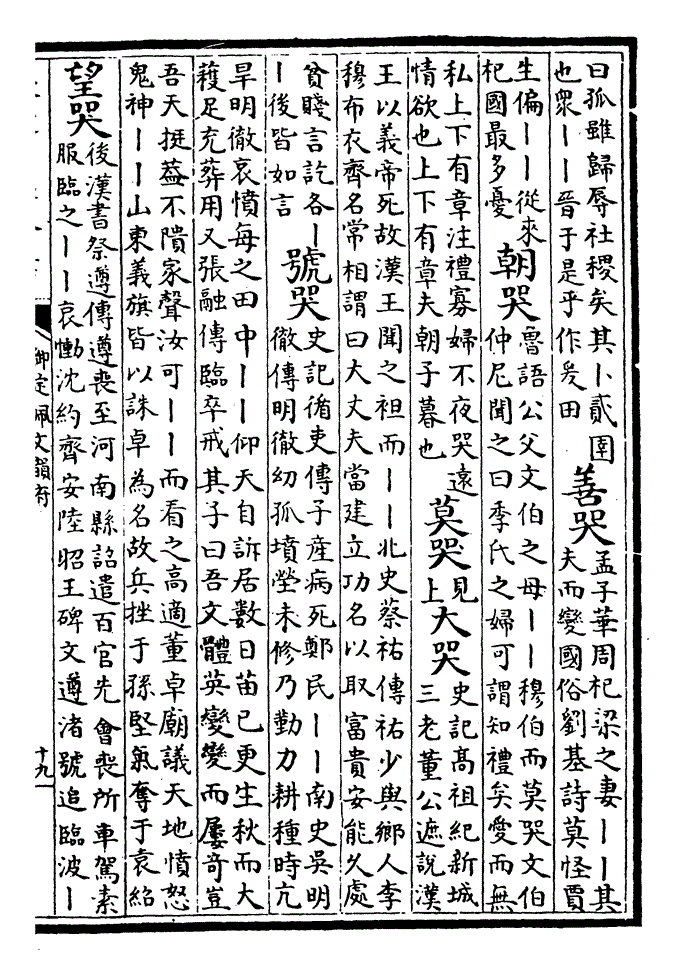 曰孤雖歸辱社稷矣其卜貳圉
也衆丨丨晉于是乎作爰田
善哭
孟子華周杞梁之妻丨丨其
夫而變國俗劉基詩莫怪賈
生偏丨丨從來
杞國最多憂
朝哭
魯語公父文伯之母丨丨穆伯而莫哭文伯
仲尼聞之曰季氏之婦可謂知禮矣愛而無
私上下有章注禮寡婦不夜哭遠
情欲也上下有章夫朝子暮也
莫哭
見
上
大哭
史記髙祖紀新城
三老董公遮說漢
王以義帝死故漢王聞之袒而丨丨北史蔡祐傳祐少與鄉人李
穆布衣齊名常相謂曰大丈夫當建立功名以取富貴安能久處
貧賤言訖各丨
丨後皆如言
號哭
史記循吏傳子產病死鄭民丨丨南史吳明
徹傳明徹幼孤墳塋未修乃勤力耕種時亢
旱明徹哀憤每之田中丨丨仰天自訴居數日苗已更生秋而大
穫足充葬用又張融傳臨卒戒其子曰吾文體英變變而屢奇豈
吾天挺蓋不隤家聲汝可丨丨而看之高適董卓廟議天地憤怒
鬼神丨丨山東義旗皆以誅卓為名故兵挫于孫堅氣奪于袁紹
望哭
後漢書祭遵傳遵喪至河南縣詔遣百官先會喪所車駕素
服臨之丨丨哀慟沈約齊安陸昭王碑文遵渚號追臨波丨
御定佩文韻府
十九